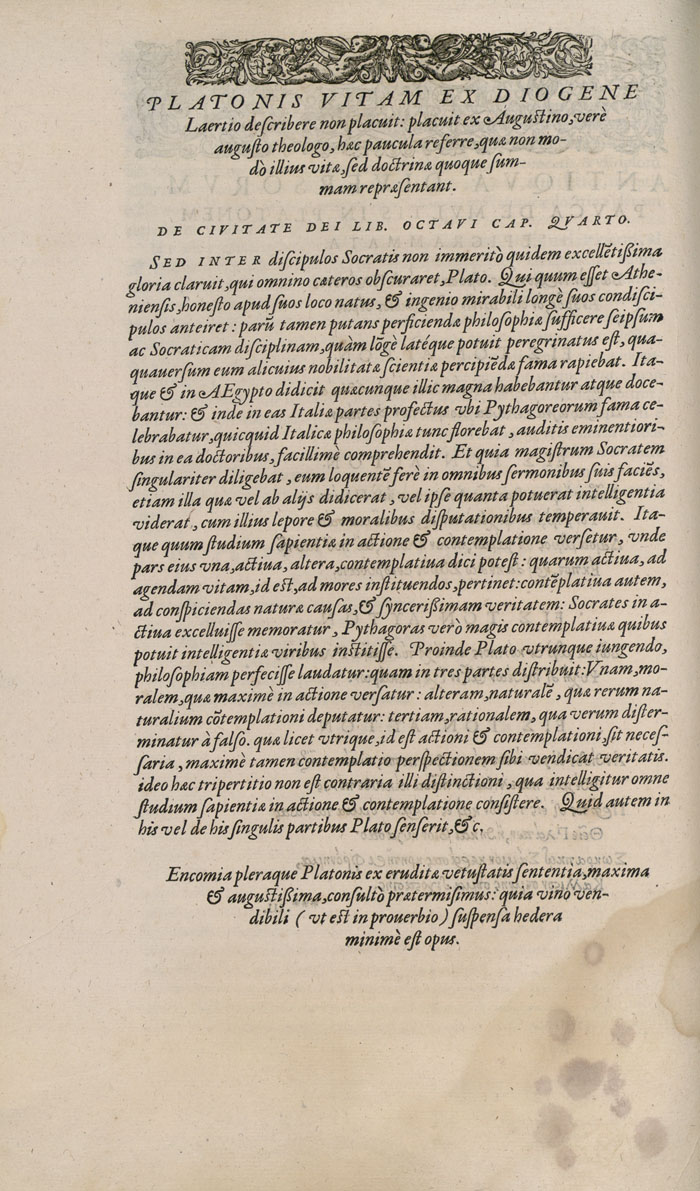 PLATONIS VITAM EX DIOGENE
Laertio deſcribere non placuit: placuit ex Auguſtino, verè
auguſto theologo, hæc paucula referre, quæ non mo-
dò illius vitæ, ſed doctrinæ quoque ſum-
mam repræſentant.
DE CIVITATE DEI LIB. OCTAVI CAP. QVARTO.
SED INTER diſcipulos Socratis non immeritò quidem excellētiſſima
gloria claruit, qui omnino cæteros obſcuraret, Plato. Qui quum eſſet Athe-
nienſis, honeſto apud ſuos loco natus, & ingenio mirabili longè ſuos condiſci-
pulos anteiret: parū tamen putans perficiendæ philoſophiæ ſufficere ſeipſum
ac Socraticam diſciplinam, quàm lōgè latéque potuit peregrinatus eſt, qua-
quauerſum eum alicuius nobilitatæ ſcientiæ percipiēdæ fama rapiebat. Ita-
que & in AEgypto didicit quæcunque illic magna habebantur atque doce-
bantur: & inde in eas Italiæ partes profectus vbi Pythagoreorum fama ce-
lebrabatur, quicquid Italicæ philoſophiæ tunc florebat, auditis eminentiori-
bus in ea doctoribus, facillimè comprehendit. Et quia magiſtrum Socratem
ſingulariter diligebat, eum loquentē ferè in omnibus ſermonibus ſuis faciēs,
etiam illa quæ vel ab alijs didicerat, vel ipſe quanta potuerat intelligentia
viderat, cum illius lepore & moralibus diſputationibus temperauit. Ita-
que quum ſtudium ſapientiæ in actione & contemplatione verſetur, vnde
pars eius vna, actiua, altera, contemplatiua dici poteſt: quarum actiua, ad
agendam vitam, id eſt, ad mores inſtituendos, pertinet: contēplatiua autem,
ad conſpiciendas naturæ cauſas, & ſynceriſſimam veritatem: Socrates in a-
ctiua excelluiſſe memoratur, Pythagoras verò magis contemplatiuæ quibus
potuit intelligentiæ viribus inſtitiſſe. Proinde Plato vtrunque iungendo,
philoſophiam perfeciſſe laudatur: quam in tres partes diſtribuit: Vnam, mo-
ralem, quæ maximè in actione verſatur: alteram, naturalē, quæ rerum na-
turalium cōtemplationi deputatur: tertiam, rationalem, qua verum diſter-
minatur à falſo. quæ licet vtrique, id eſt actioni & contemplationi, ſit neceſ-
ſaria, maximè tamen contemplatio perſpectionem ſibi vendicat veritatis.
ideo hæc tripertitio non eſt contraria illi diſtinctioni, qua intelligitur omne
ſtudium ſapientiæ in actione & contemplatione conſiſtere. Quid autem in
his vel de his ſingulis partibus Plato ſenſerit, &c.
Encomia pleraque Platonis ex eruditæ vetuſtatis ſententia, maxima
& auguſtiſſima, conſultò prætermiſimus: quia vino ven-
dibili ( vt eſt in prouerbio ) ſuſpenſa hedera
minimè eſt opus.